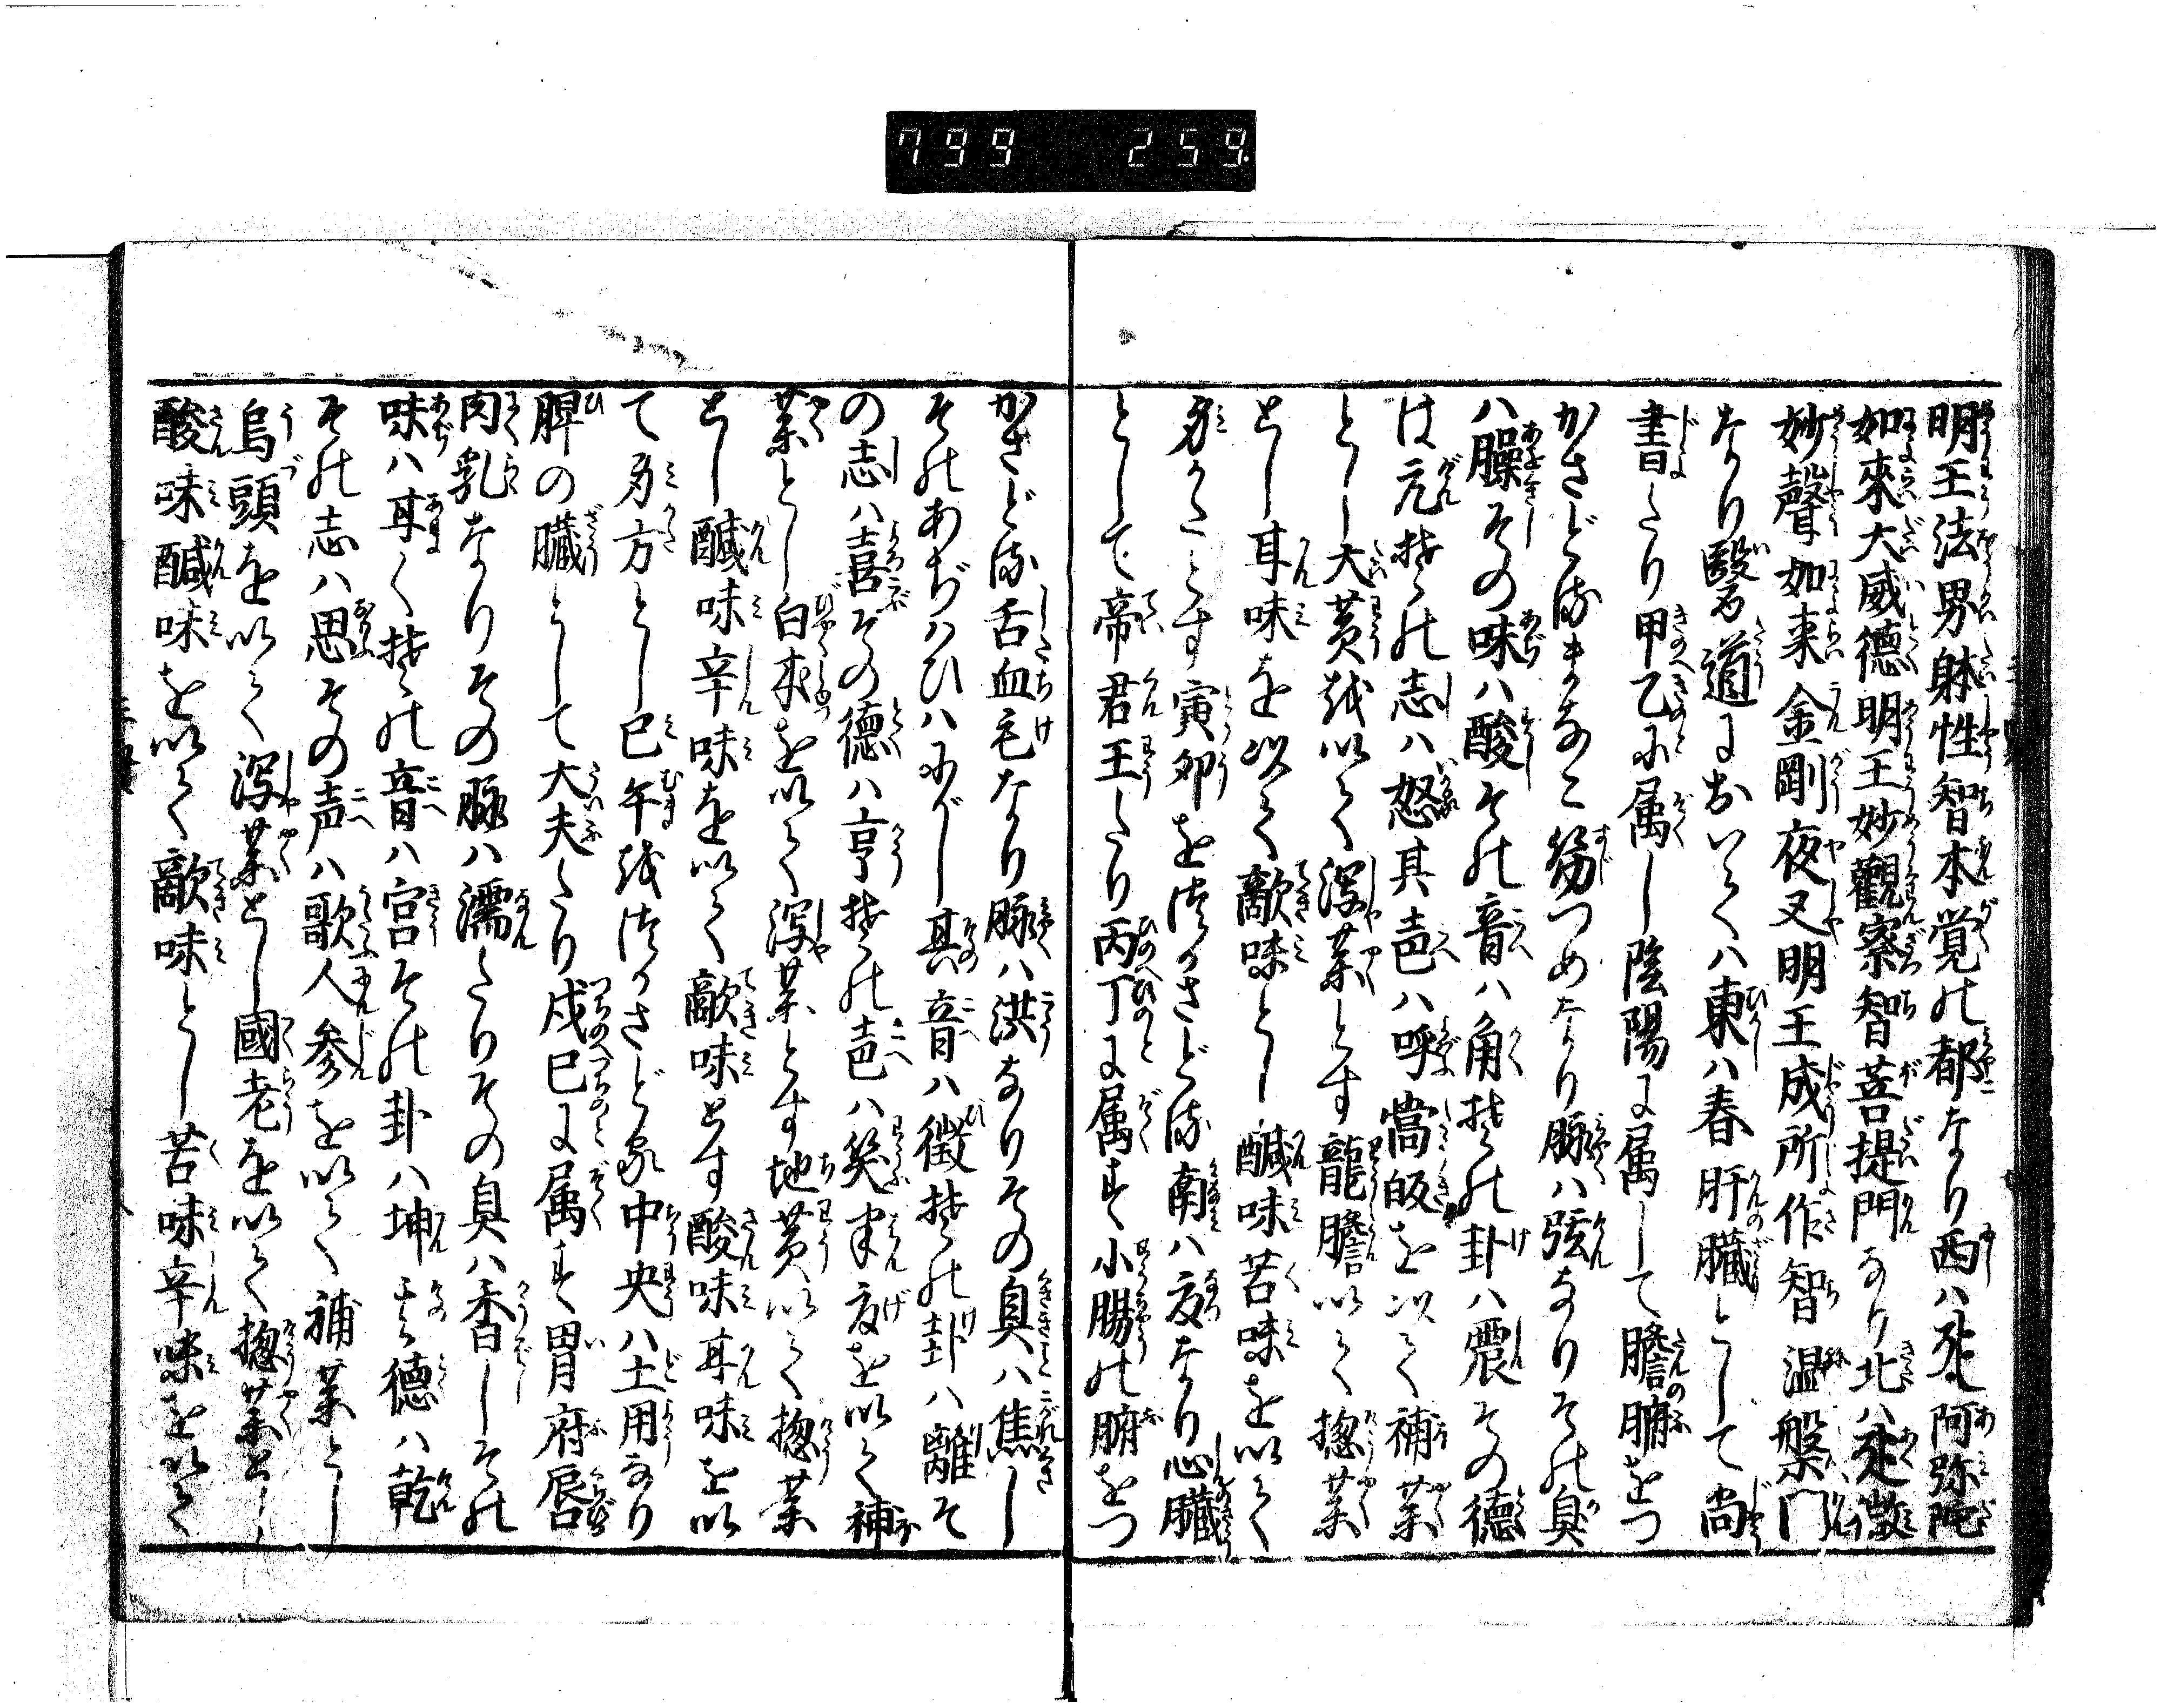 799 259.
明王法界躰性智本覚の都なり西ハ死阿弥陀
如來大威德明王妙觀察智菩提門なり北ハ死微
妙聲如来金剛夜叉明王成所作智温槃門
なり毉道においてハ東ハ春肝臓として尚
書たり甲乙に属し陰陽に属して膽腑をつ
かさどるまなこ筋つめなり脉ハ弦なりその臭
ハ臊その味ハ酸その音ハ角その卦ハ震その德
は元其の志ハ怒其声ハ呼當皈を以て補薬
とし大黄を以て瀉薬とす龍膽以て惣薬
とし甘味を以て敵味とし醎味苦味を以て
身かたとす寅卯をつかさどる南ハ夏なり心臓
として帝君王たり丙丁に属す小腸の腑をつ
かさどる舌血毛なり脉ハ洪なりその臭ハ焦し
そのあぢハひハにがし其音ハ徴其の卦ハ離そ
の志ハ喜その德ハ亨其の声ハ笑半夏を以て補
薬とし白朮を以て瀉薬とす地黄以て惣薬
とし醎味辛味を以て敵味とす酸味甘味を以
て身方とし巳午をつかさどる中央ハ土用なり
脾の臓として大夫たり戊己に属す胃府唇
肉乳なりその脉ハ濡たりその臭ハ香しその
味ハ甘く其の音ハ宮その卦ハ坤其德ハ乾
その志ハ思その声ハ歌人参を以て補薬とし
烏頭を以て瀉薬とし國老を以て惣薬とし
酸味醎味を以て敵味とし苦味辛味を以て